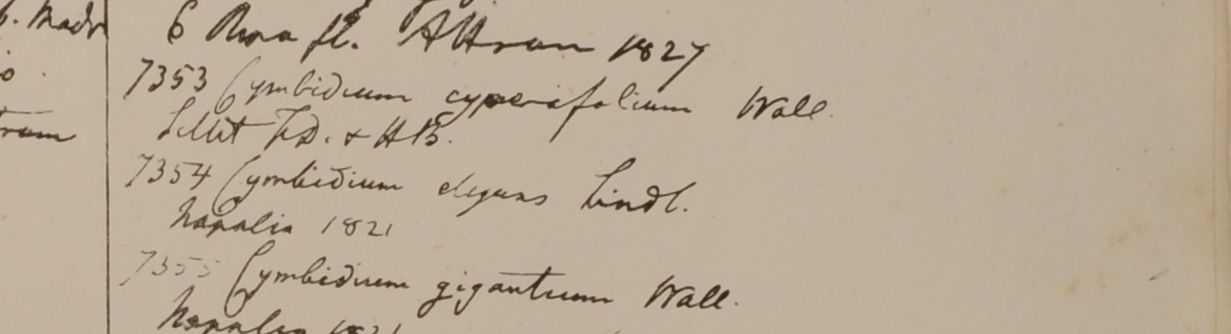 6 Ava fl. Attran 1827
7353 Cymbidium cyperifolium Wall.
Sillet F.D. & H.B.
7354 Cymbidium elegans Lindl.
Napalia 1821
7355 Cymbidium giganteum Wall.
Napalia 1821